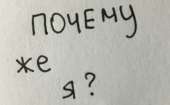 ПОЧЕМУ
же
я?